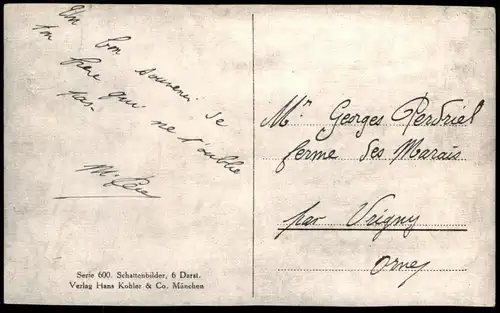 Un bon souvenir de
ton frère qui ne t'oublie
pas.
Mr Georges Perdriel
ferme des Marais
par Vrigny
Orne
Serie 600. Schattenbilder, 6 Darst.
Verlag Hans Kohler & Co. München